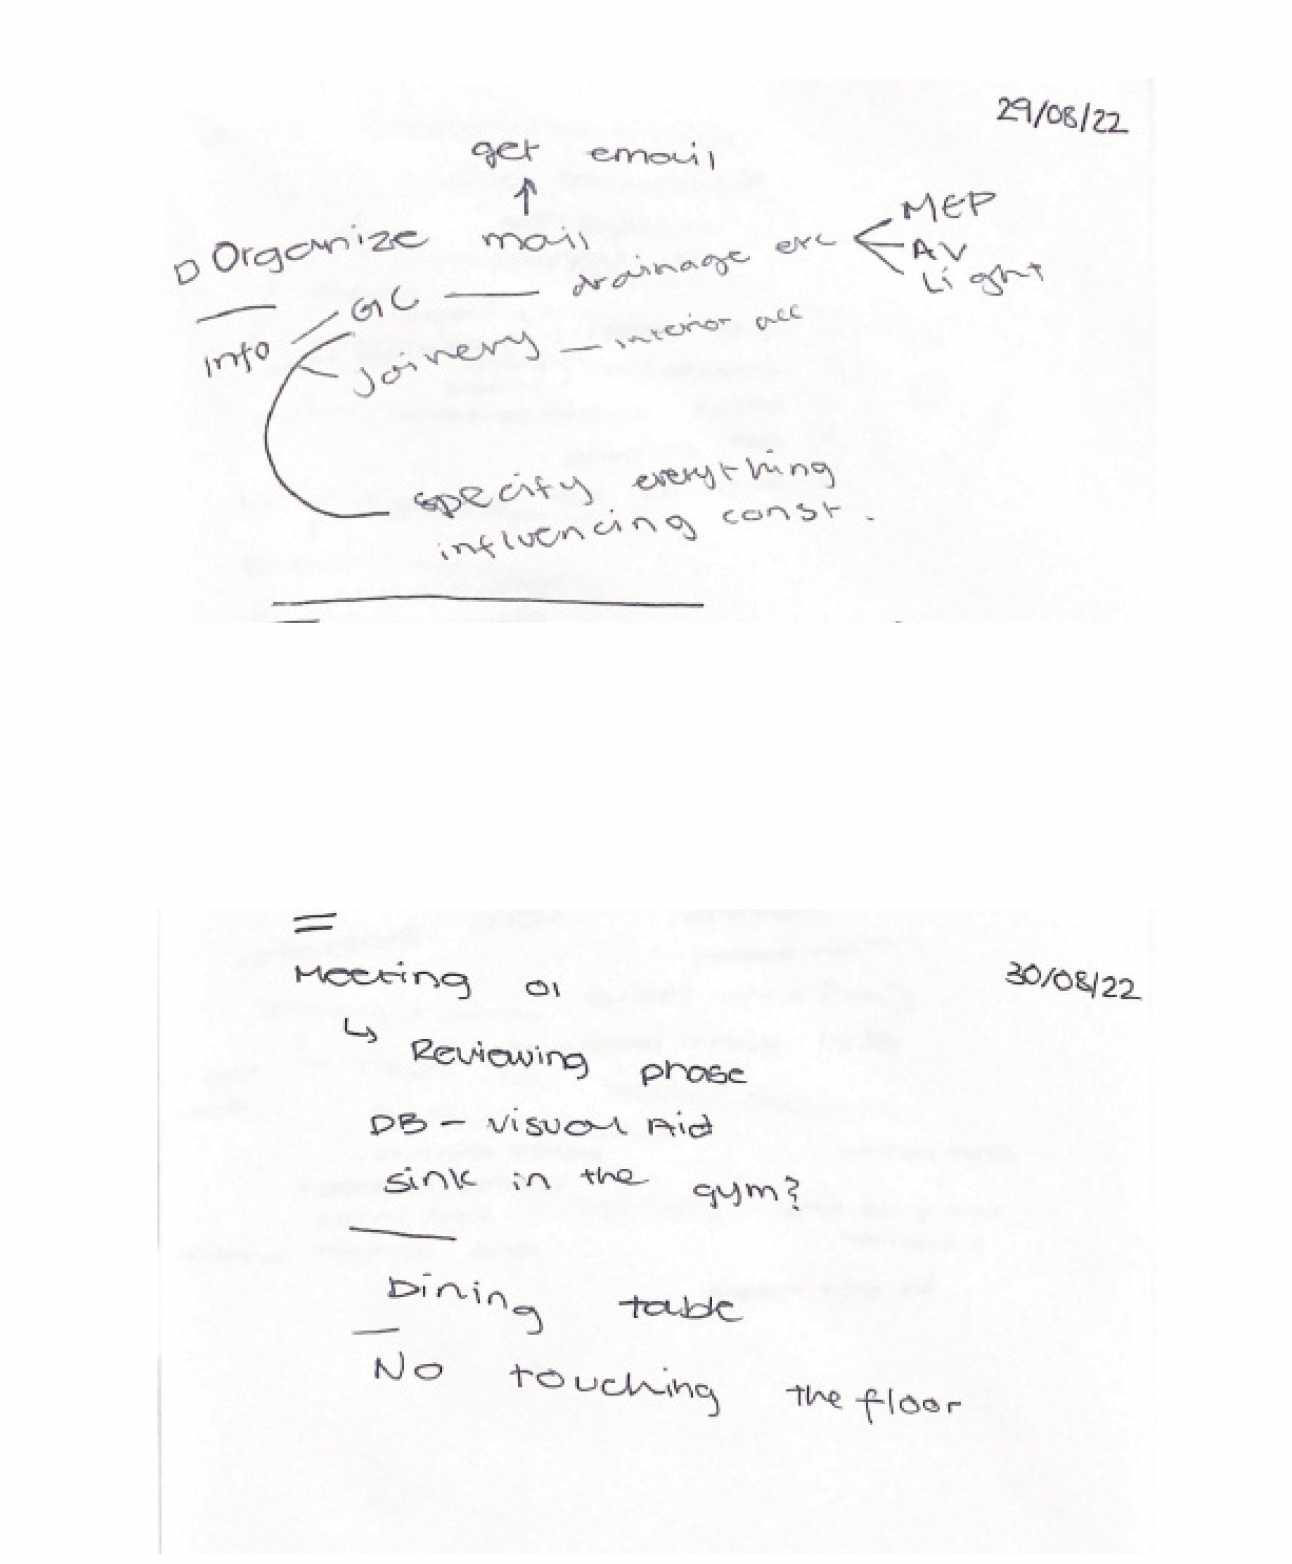 29/08/22
get email
↑
Organize mail
info
GC — drainage etc
MEP
AV
Light
Joinery — interior acc
specify everything
influencing const.
30/08/22
Meeting 01
↳ Reviewing phase
DB - visual Aid
sink in the gym?
Dining table
No touching the floor